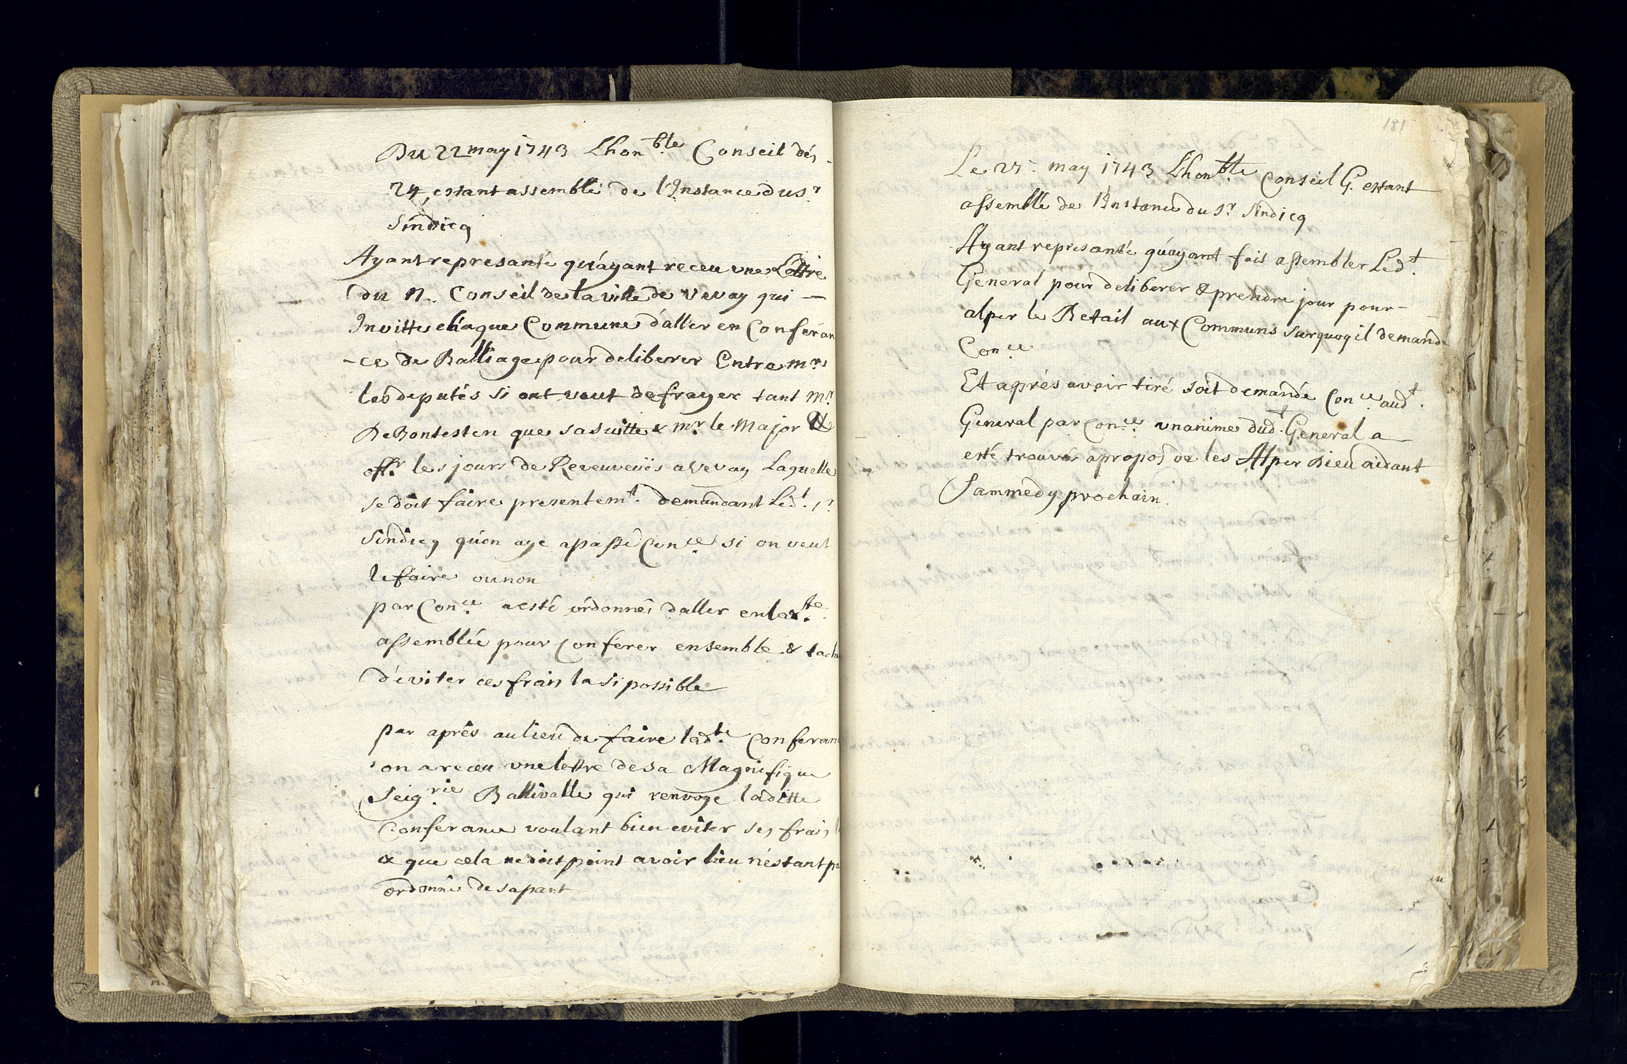 Du 22 may 1743 Lhon.ble Conseil des
24, estant assemblé de l'Instance du s.r
Sindicq
Ayant represanté qu'ayant receu une Lettre
du N. Conseil de la ville de Vevay qui —
Invitte chaque Commune d'aller en Conferan
-ce de Balliage pour deliberer Entre m.rs
les deputés si ont veut defrayer tant M.r
De Bonsteten que sa suitte & m.r le Major &
off.r les jours de Reveuveües a Vevay Laquelle
se doit faire presentem.t demandant Led.t s.r
Sindicq qu'on aye a passé Con.ce si on veut
le faire ou non
par Con.ce a esté ordonnés d'aller en lad.te
assemblée pour Conferer ensemble & tach
d'eviter ces frais la si possible
par aprés au lieu de faire lad.te Conferan
on a receu une lettre de sa Magnifique
Seig.rie Ballivalle qui renvoye laditte
Conferance voulant bien eviter ses frais l
& que cela ne doit point avoir lieu n'estant p
ordonné de sa part
181
Le 27. may 1743 Lhon.ble Conseil G. estant
assemblé de l'Instance du s.r Sindicq
Ayant represanté qu'ayant fait assembler Led.t
General pour deliberer & prendre jour pour —
alper le Betail aux Communs surquoy il demande
Con.ce
Et aprés avoir tiré soit demandé Con.ce aud.t
General par Con.ce unanime dud.t General a —
esté trouvé apropos de les Alper Dieu aidant
Sammedy prochain.